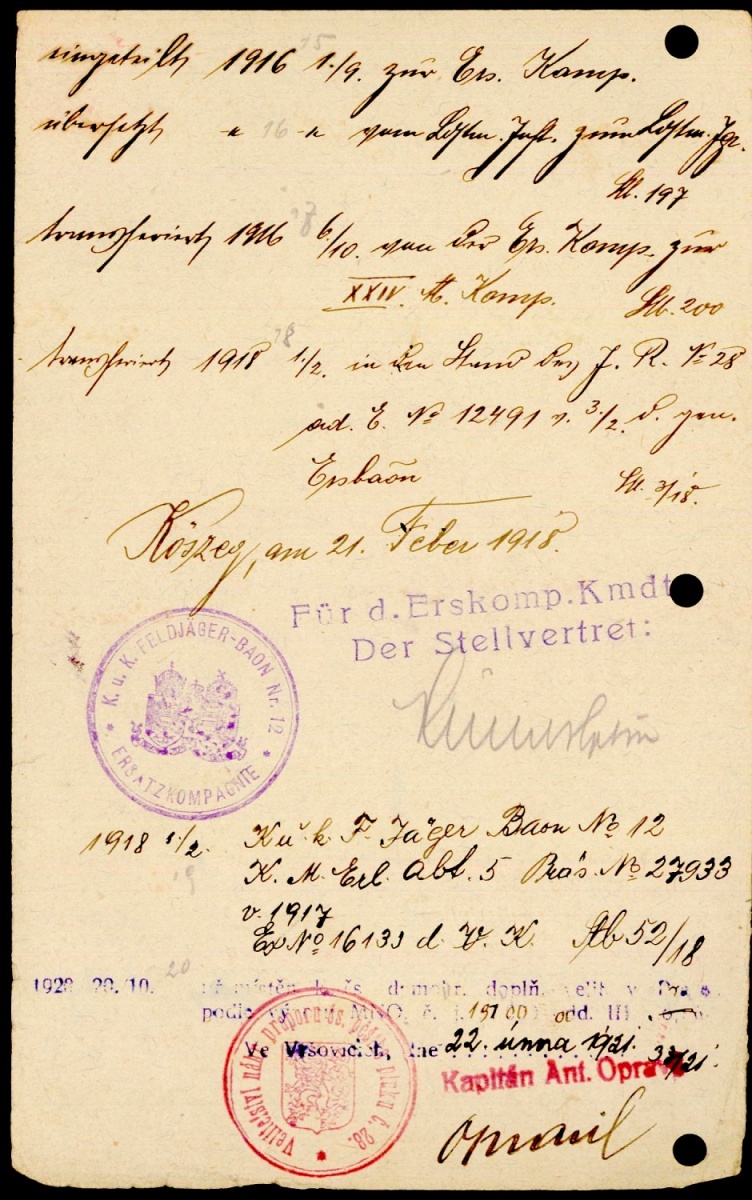 15
eingeteilt 1916 1./9. zur Ers. Komp.
übersetzt -"- 16 -"- vom Ldstm. Inft. zum Ldstm. Jgr.
Stb. 197
transferiert 1916 6/10. von der Ers. Komp. zur
XXIV. M. Komp. Stb. 200
18
transferiert 1918 1./2. in den Stand des J. R. No 28
ad. E. No 12491 v. 3./2. d. gen.
Ersbaon 3/18.
Köszeg, am 21. Feber 1918.
Für d. Erskomp. Kmdt
Der Stellvertret:
K. u. K. FELDJÄGER-BAON Nr. 12
* ERSATZKOMPAGNIE *
1918 1./2. K. u. k. F. Jäger Baon No 12
19
K. M. Erl. Abt. 5 Präs. No 27933
v. 1917
Ex No 16133 d. W. K. Stb 52/18
20
1920 20./10. demobr. doplň. velit. v
podle MNO. č. j. 15700 odd. III
Ve Vršovicích, dne 22. února 1921. 33/21
Kapitán Ant. Opra
Velitelství náhr. praporu čs. pěš. pluku č. 28.
Opravil